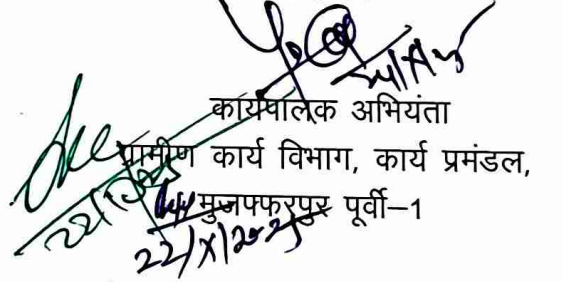 कार्यपालक अभियंता
ग्रामीण कार्य विभाग, कार्य प्रमंडल,
मुजफ्फरपुर पूर्वी–1
22/X/2025